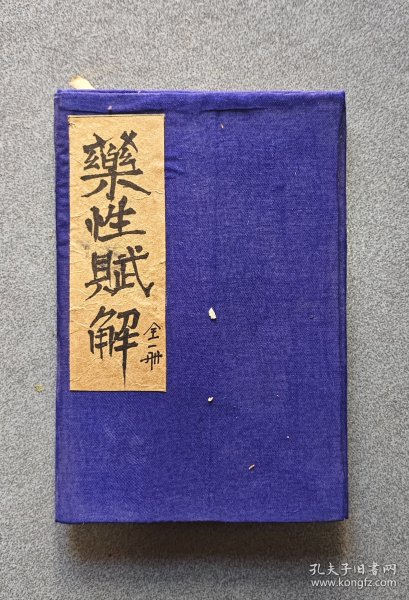 藥性賦解
全一册
孔夫子旧书网
www.kongfz.com